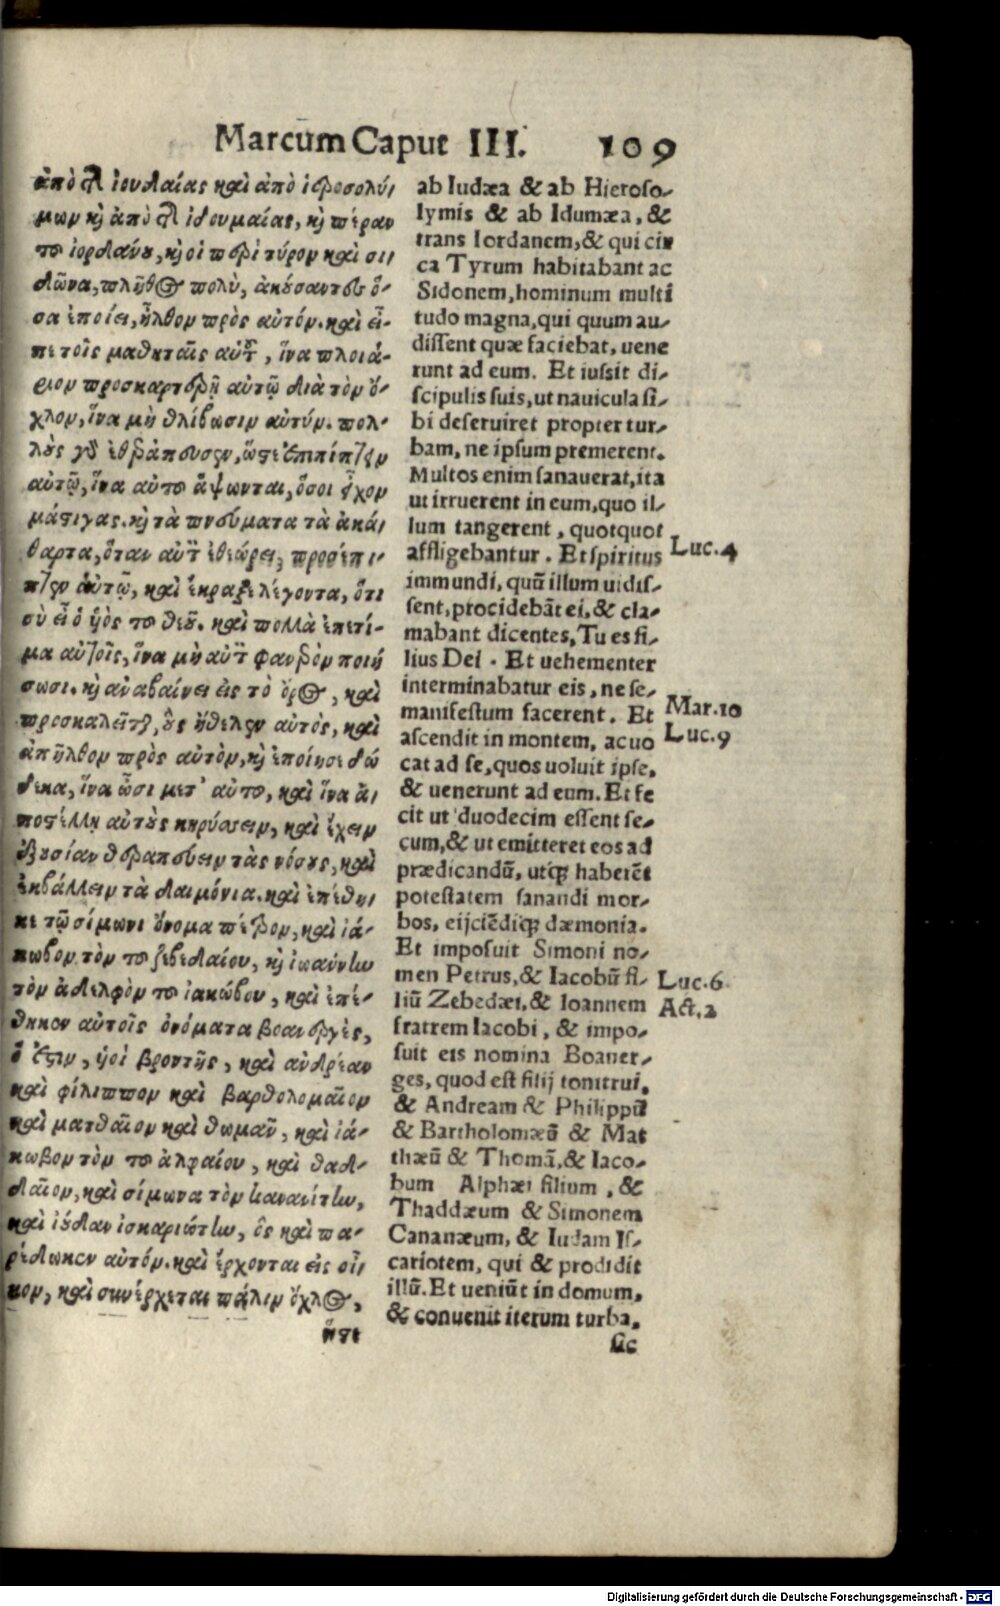 Marcum Caput III. 109
ἀπὸ τῆς ἰουδαίας καὶ ἀπὸ ἱεροσολύ-
μων καὶ ἀπὸ τῆς ἰδουμαίας, καὶ πέραν
τοῦ ἰορδάνου, καὶ οἱ περὶ τύρον καὶ σι-
δῶνα, πλῆθος πολὺ, ἀκούσαντες ὅ-
σα ἐποίει, ἦλθον πρὸς αὐτόν. καὶ εἶ-
πε τοῖς μαθηταῖς αὐτοῦ, ἵνα πλοιά-
ριον προσκαρτερῇ αὐτῷ διὰ τὸν ὄ-
χλον, ἵνα μὴ θλίβωσιν αὐτόν. πολ-
λοὺς γὰρ ἐθεράπευσεν, ὥστε ἐπιπίπτειν
αὐτῷ, ἵνα αὐτοῦ ἅψωνται, ὅσοι εἶχον
μάστιγας. καὶ τὰ πνεύματα τὰ ἀκά-
θαρτα, ὅταν αὐτὸν ἐθεώρει, προσέπι-
πτεν αὐτῷ, καὶ ἔκραζε λέγοντα, ὅτι
σὺ εἶ ὁ υἱὸς τοῦ θεοῦ. καὶ πολλὰ ἐπετί-
μα αὐτοῖς, ἵνα μὴ αὐτὸν φανερὸν ποιή
σωσι. καὶ αναβαίνει εἰς τὸ ὄρος, καὶ
προσκαλεῖται, οὓς ἤθελεν αὐτὸς, καὶ
ἀπῆλθον πρὸς αὐτὸν, καὶ ἐποίησε δώ
δεκα, ἵνα ὦσι μετ' αὐτοῦ, καὶ ἵνα ἀ-
ποστέλλη αὐτοὺς κηρύσσειν, καὶ ἔχειν
ἐξουσίαν θεραπεύειν τὰς νόσους, καὶ
ἐκβάλλειν τὰ δαιμόνια. καὶ ἐπέθη-
κε τῷ σίμωνι ὄνομα πέτρον, καὶ ἰά-
κωβον τὸν τοῦ ζεβεδαίου, καὶ ἰωαύνην
τὸν ἀδελφὸν τοῦ ἰακώβου, καὶ ἐπέ-
θηκεν αὐτοῖς ὀνόματα βοανεργὲς,
ὅ ἐστιν, υἱοὶ βροντῆς, καὶ ανδρέαν
καὶ φίλιππον καὶ βαρθολομαῖον
καὶ ματθαῖον καὶ θωμᾶν, καὶ ἰά-
κωβον τὸν τοῦ ἀλφαίου, καὶ θαδ-
δαῖον, καὶ σίμωνα τὸν κανανίτην,
καὶ ἰούδαν ἰσκαριώτην, ὃς καὶ πα-
ρέδωκεν αὐτόν. καὶ ἔρχονται εἰς οἶ-
κον, καὶ συνέρχεται πάλιν ὄχλος,
ὥστε
ab Iudæa & ab Hieroso-
lymis & ab Idumæa, &
trans Iordanem, & qui cir
ca Tyrum habitabant ac
Sidonem, hominum multi
tudo magna, qui quum au-
dissent quæ faciebat, uene
runt ad eum. Et iussit di-
scipulis suis, ut nauicula si-
bi deseruiret propter tur-
bam, ne ipsum premerent.
Multos enim sanauerat, ita
ut irruerent in eum, quo il-
lum tangerent, quotquot
affligebantur. Et spiritus
immundi, quũ illum uidis-
sent, procidebãt ei, & cla-
mabant dicentes, Tu es fi-
lius Dei. Et uehementer
interminabatur eis, ne se-
manifestum facerent. Et
ascendit in montem, ac uo
cat ad se, quos uoluit ipse,
& uenerunt ad eum. Et fe
cit ut duodecim essent se-
cum, & ut emitteret eos ad
prædicandũ, utq́; haberẽt
potestatem sanandi mor-
bos, eijciẽdiq́; dæmonia.
Et imposuit Simoni no-
men Petrus, & Iacobũ fi-
liũ Zebedæi, & Ioannem
fratrem Iacobi, & impo-
suit eis nomina Boaner-
ges, quod est filij tonitrui,
& Andream & Philippũ
& Bartholomæũ & Mat
thæũ & Thomã, & Iaco-
bum Alphæi filium, &
Thaddæum & Simonem
Cananæum, & Iudam Is-
cariotem, qui & prodidit
illũ. Et ueniũt in domum,
& conuenit iterum turba,
sic
Luc. 4
Mar. 10
Luc. 9
Luc. 6
Act. 2
Digitalisierung gefördert durch die Deutsche Forschungsgemeinschaft - DFG